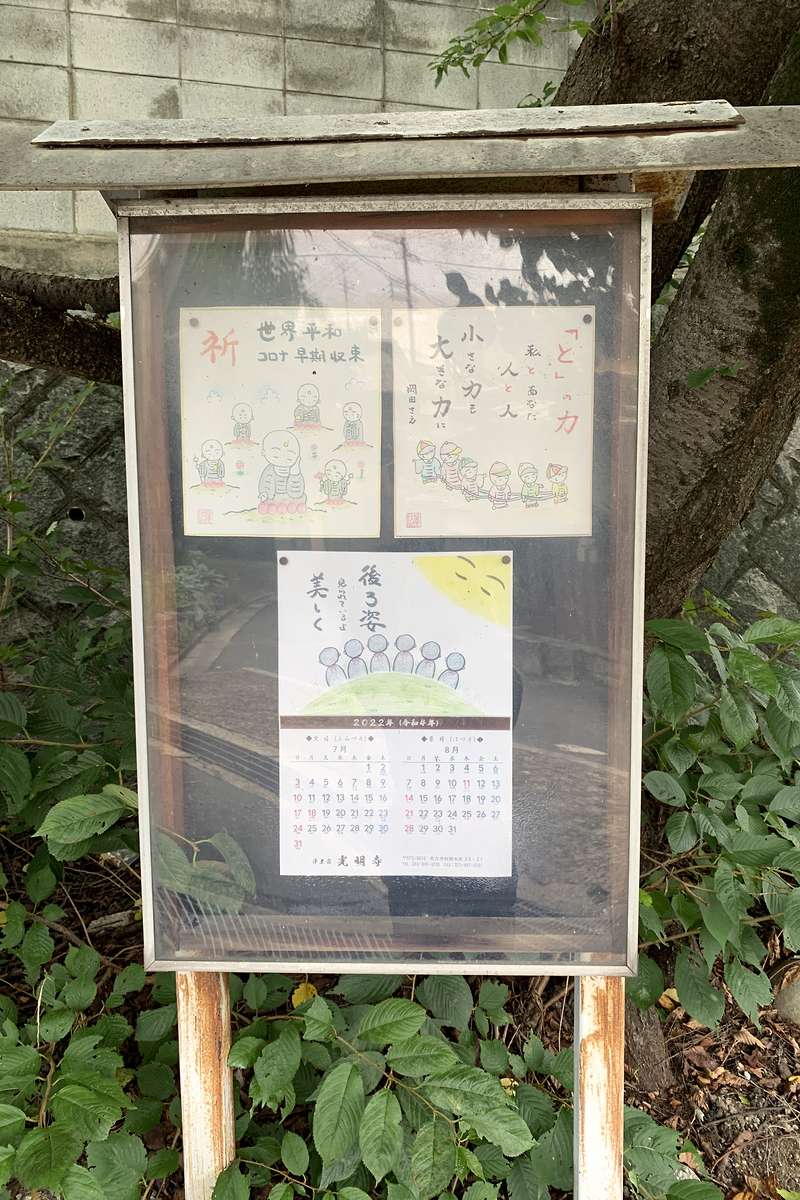 祈
世界平和
コロナ早期収束
「と」の力
私とあなた
人と人
小さな力も
大きな力に
後ろ姿
見られているよ
美しく
2022年（令和4年）
◆文月（ふみづき）◆
7月
日 月 火 水 木 金 土
1 2
3 4 5 6 7 8 9
10 11 12 13 14 15 16
17 18 19 20 21 22 23
24 25 26 27 28 29 30
31
◆葉月（はづき）◆
8月
日 月 火 水 木 金 土
1 2 3 4 5 6
7 8 9 10 11 12 13
14 15 16 17 18 19 20
21 22 23 24 25 26 27
28 29 30 31
浄土宗 光明寺